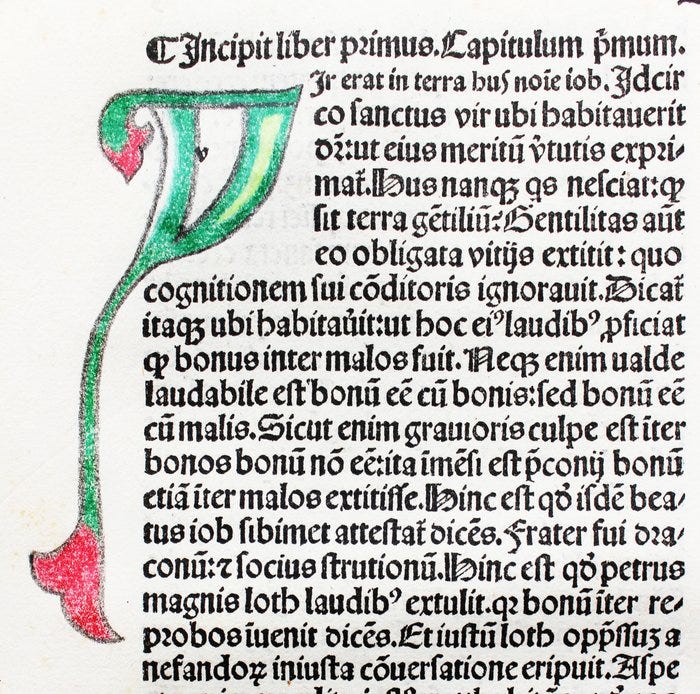 ¶ Incipit liber primus. Capitulum p̄mum.
VIr erat in terra hus noīe iob. Idcir
co sanctus vir ubi habitauerit
dr̄: ut eius meritū v̓tutis expri-
mat̄. Hus nanqꝫ qs nesciat: ꝙ
sit terra gētiliū: Gentilitas aūt
eo obligata vitijs extitit: quo
cognitionem sui cōditoris ignorauit. Dicat̄
itaqꝫ ubi habitau̓it: ut hoc eiꝰ laudibꝰ ꝓficiat
ꝙ bonus inter malos fuit. Neqꝫ enim ualde
laudabile est bonū eē cū bonis: sed bonū eē
cū malis. Sicut enim grauioris culpe est īter
bonos bonū nō eē: ita īmēsi est p̄conij bonū
etiā īter malos extitisse. Hinc est qđ isdē bea-
tus iob sibimet attestat̄ dicēs. Frater fui dra-
conū: ⁊ socius strutionū. Hinc est qđ petrus
magnis loth laudibꝰ extulit. qꝛ bonū īter re-
probos īuenit dicēs. Et iustū loth opp̄ssuꝫ a
nefandoꝝ iniusta cōuersatione eripuit. Aspe